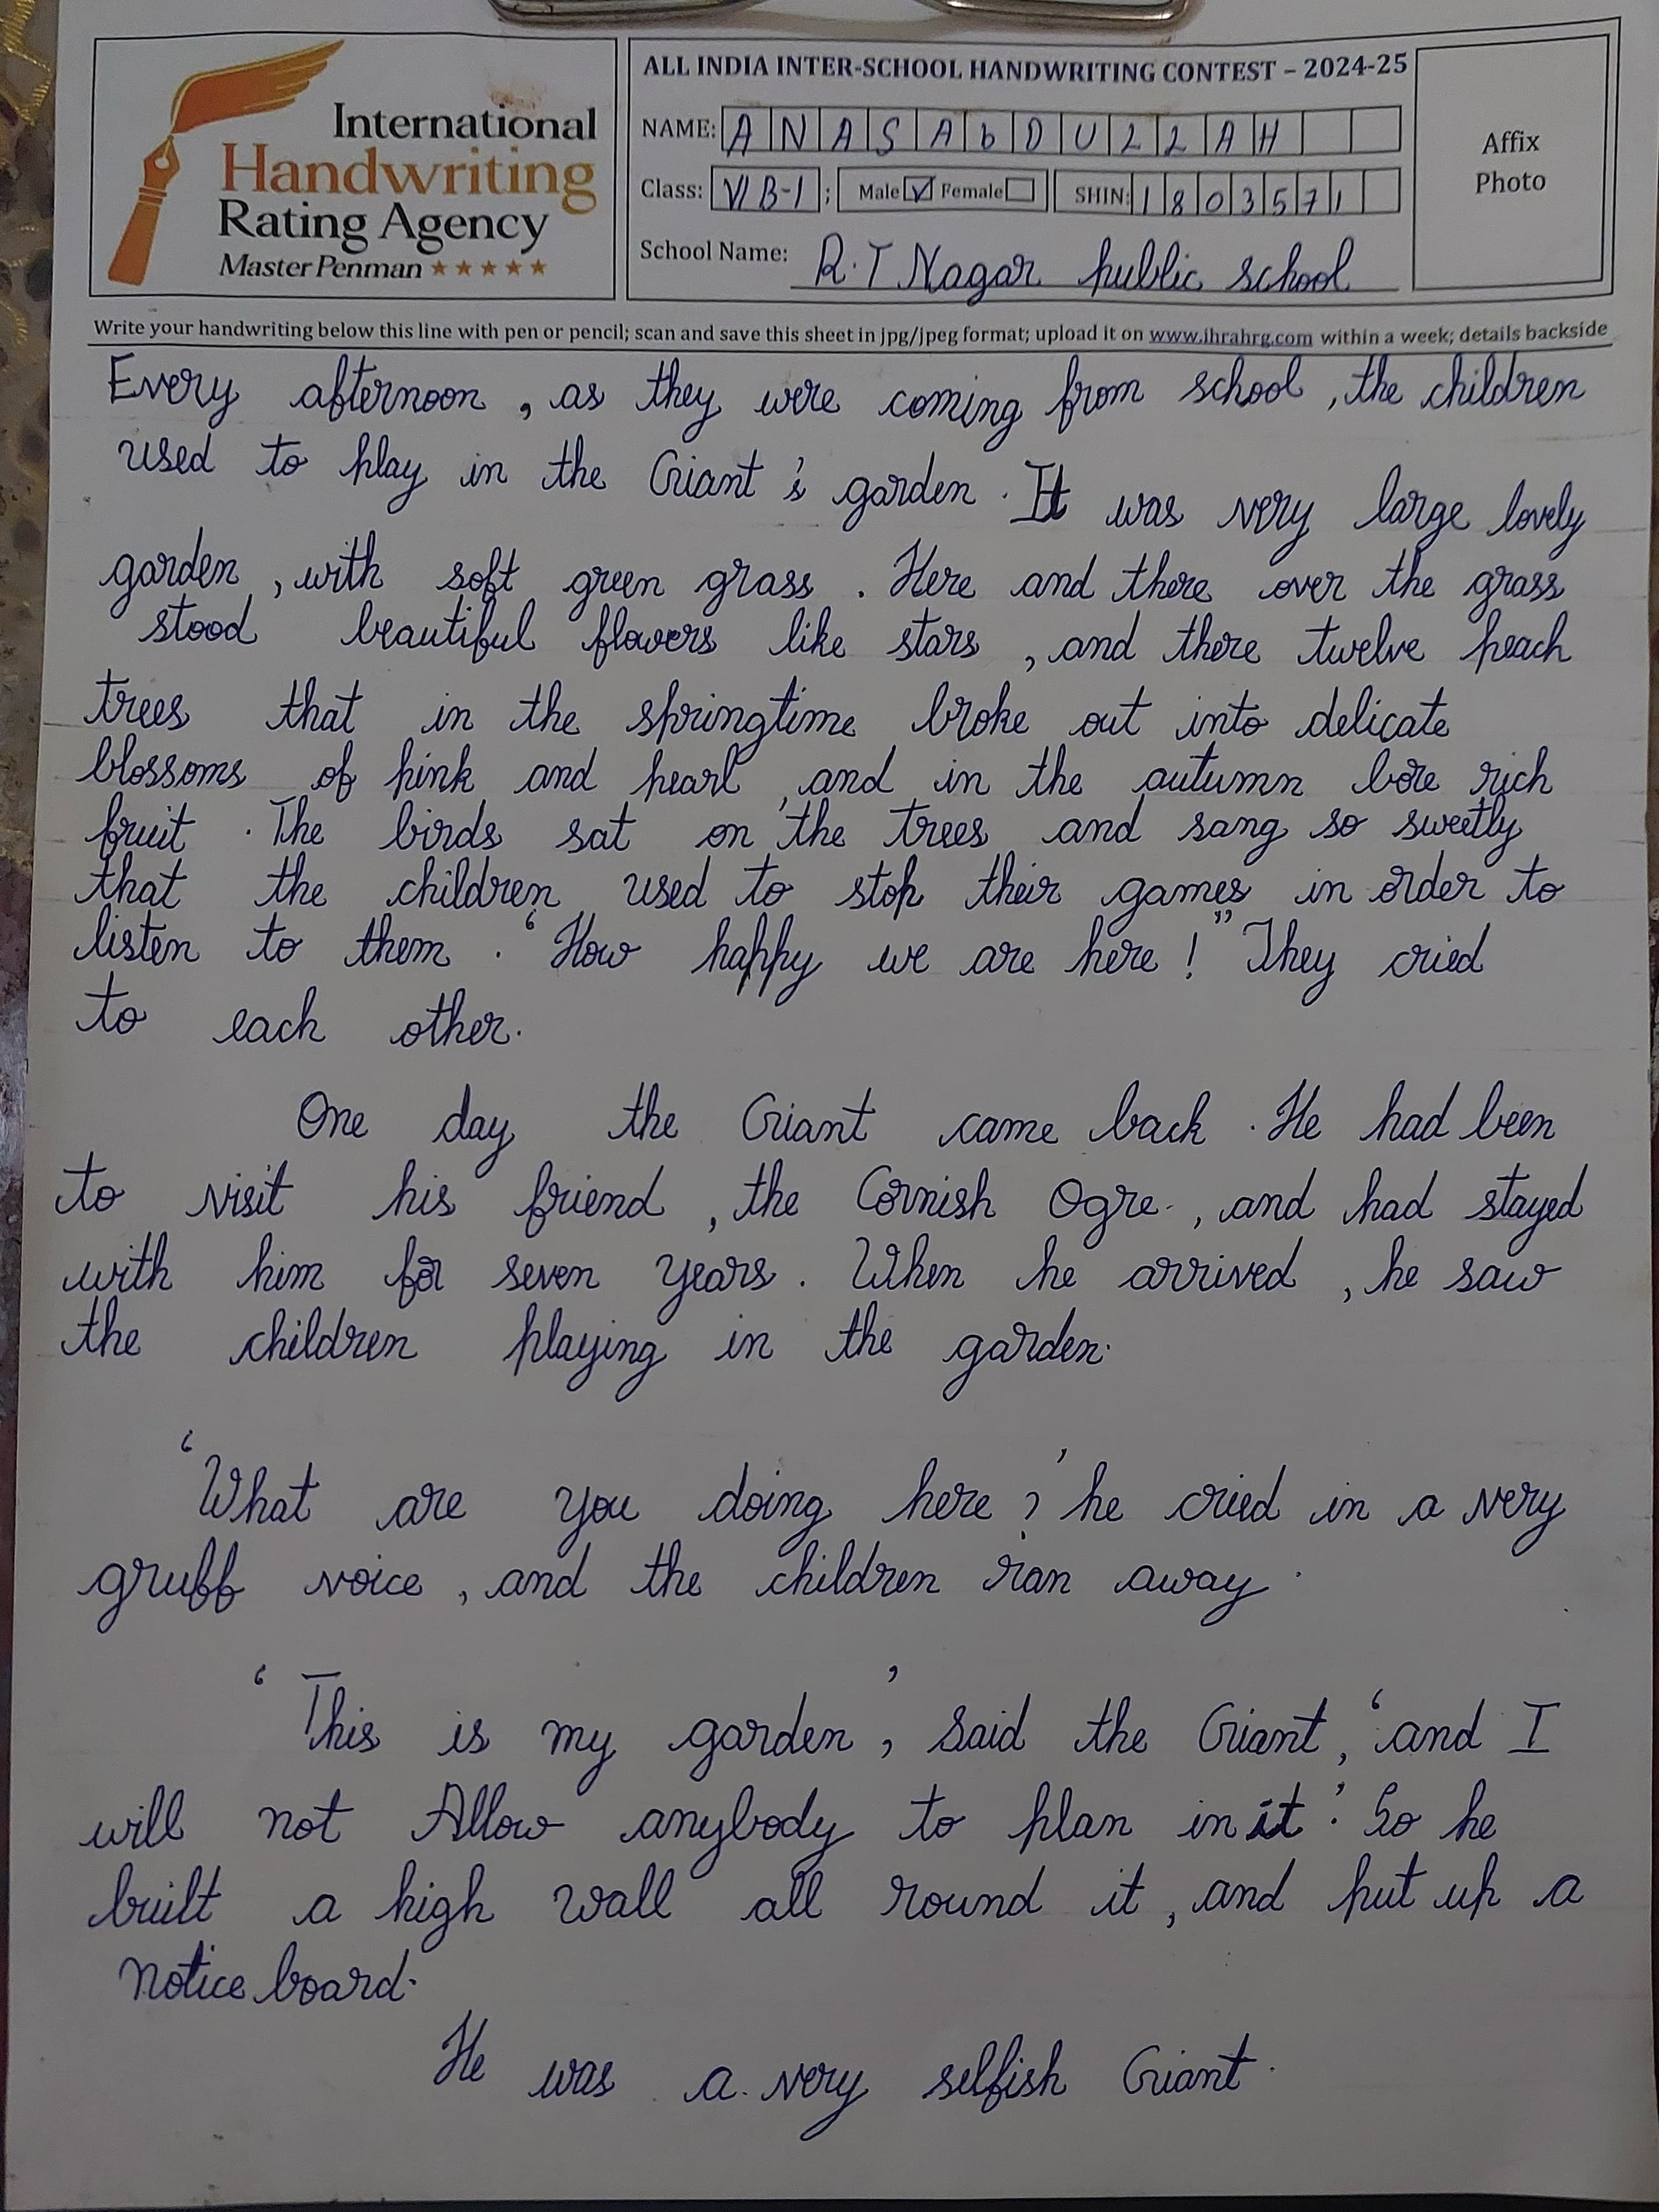 International
Handwriting
Rating Agency
Master Penman ★★★★★
ALL INDIA INTER-SCHOOL HANDWRITING CONTEST – 2024-25
NAME: ANAS AbDULLAH
Class: VI B-1 ; Male ☑ Female ☐ SHIN: 1803571
School Name: R.T Nagar public school
Affix
Photo
Write your handwriting below this line with pen or pencil; scan and save this sheet in jpg/jpeg format; upload it on www.ihrahrg.com within a week; details backside
Every afternoon , as they were coming from school , the children
used to play in the Giant 's garden . It was very large lovely
garden , with soft green grass . Here and there over the grass
stood beautiful flowers like stars , and there twelve peach
trees that in the springtime broke out into delicate
blossoms of pink and pearl , and in the autumn bore rich
fruit . The birds sat on the trees and sang so sweetly
that the children used to stop their games in order to
listen to them . ‘ How happy we are here ! ” They cried
to each other.
One day the Giant came back . He had been
to visit his friend , the Cornish Ogre. , and had stayed
with him for seven years . When he arrived , he saw
the children playing in the garden.
‘What are you doing here ?’ he cried in a very
gruff voice , and the children ran away .
‘ This is my garden ,’ Said the Giant, ‘and I
will not Allow anybody to plan in it .’ So he
built a high wall all round it , and put up a
notice board.
He was a. very selfish Giant .